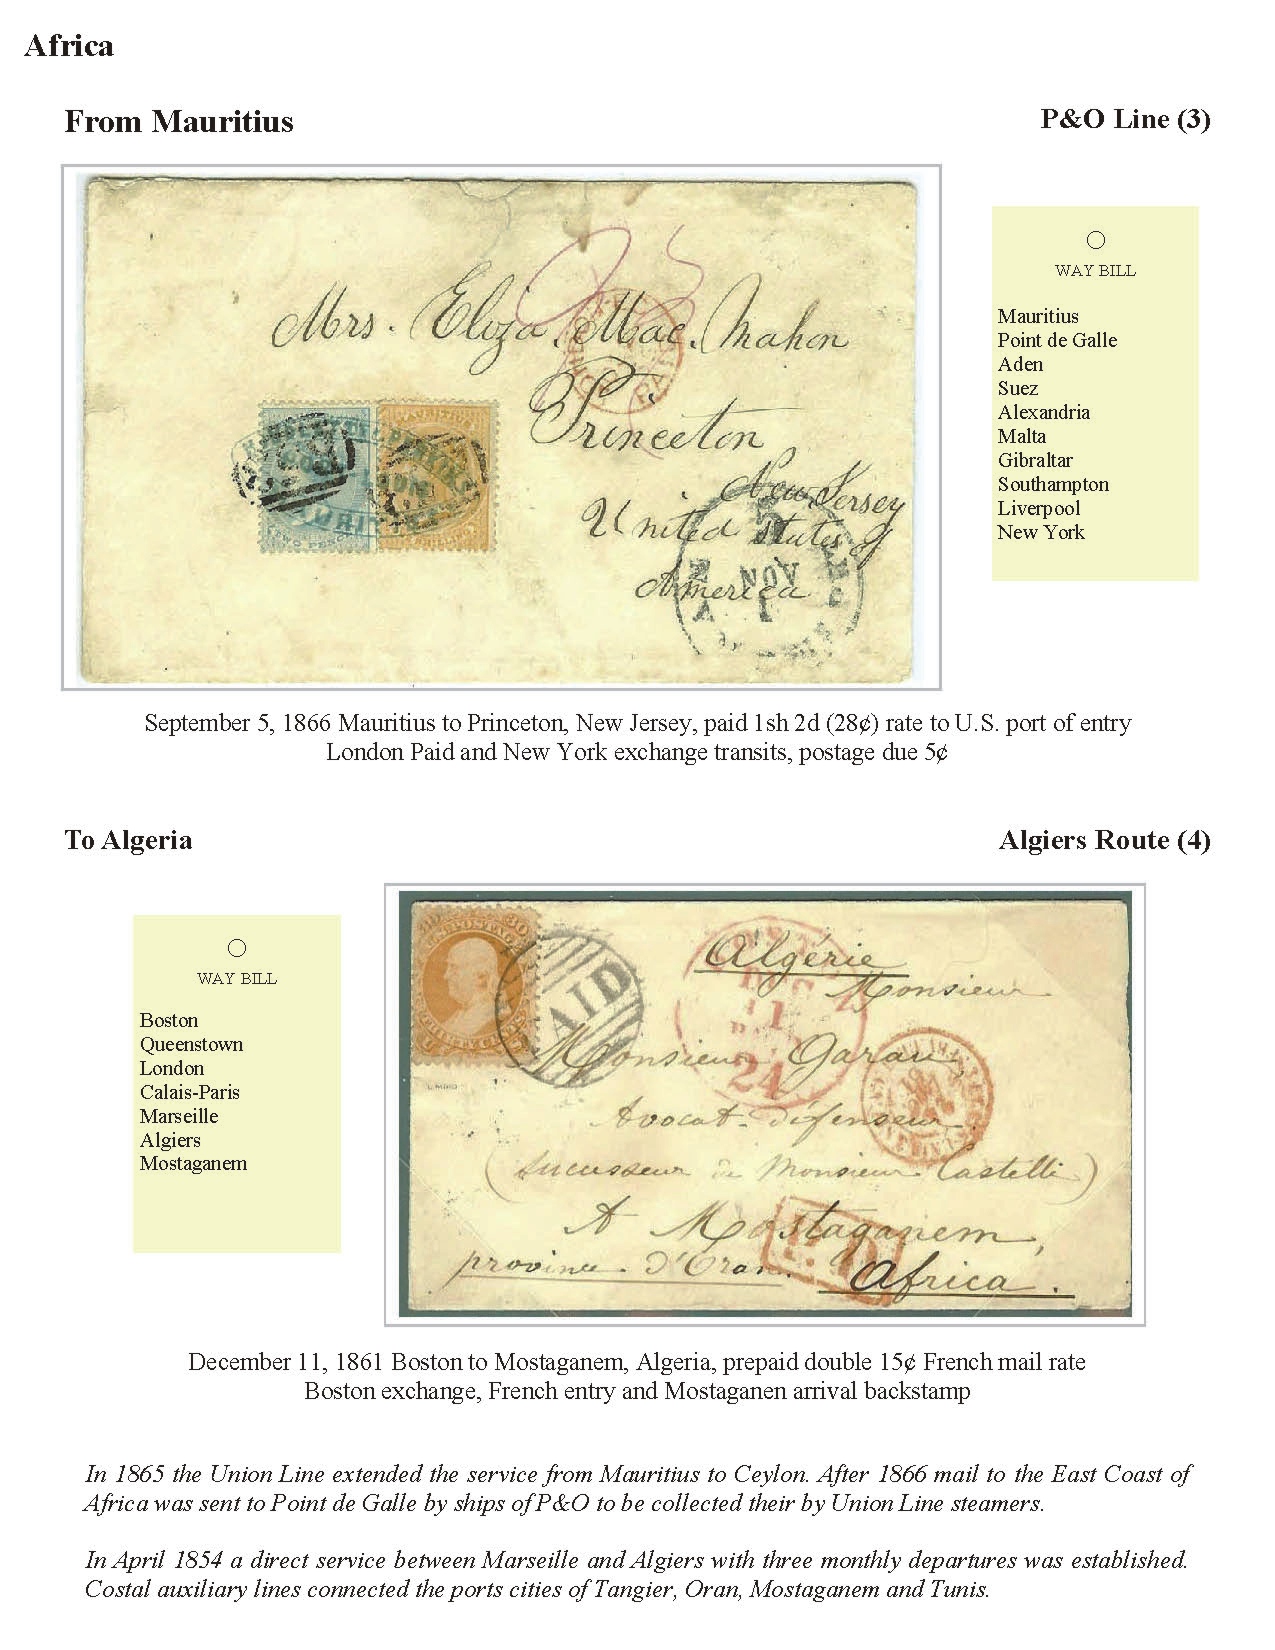 Africa
From Mauritius
P&O Line (3)
Mrs. Eliza Mac. Mahon
Princeton
New Jersey
United States of
America
TWO PENCE
PAID
5
NOV
1
WAY BILL
Mauritius
Point de Galle
Aden
Suez
Alexandria
Malta
Gibraltar
Southampton
Liverpool
New York
September 5, 1866 Mauritius to Princeton, New Jersey, paid 1sh 2d (28¢) rate to U.S. port of entry
London Paid and New York exchange transits, postage due 5¢
To Algeria
Algiers Route (4)
WAY BILL
Boston
Queenstown
London
Calais-Paris
Marseille
Algiers
Mostaganem
30
PAID
24
Algérie
Monsieur
Monsieur Garau,
Avocat-défenseur
(successeur de Monsieur Castelli)
A Mostaganem,
province d'Oran. Africa.
P.D.
December 11, 1861 Boston to Mostaganem, Algeria, prepaid double 15¢ French mail rate
Boston exchange, French entry and Mostaganen arrival backstamp
In 1865 the Union Line extended the service from Mauritius to Ceylon. After 1866 mail to the East Coast of
Africa was sent to Point de Galle by ships of P&O to be collected their by Union Line steamers.
In April 1854 a direct service between Marseille and Algiers with three monthly departures was established.
Costal auxiliary lines connected the ports cities of Tangier, Oran, Mostaganem and Tunis.